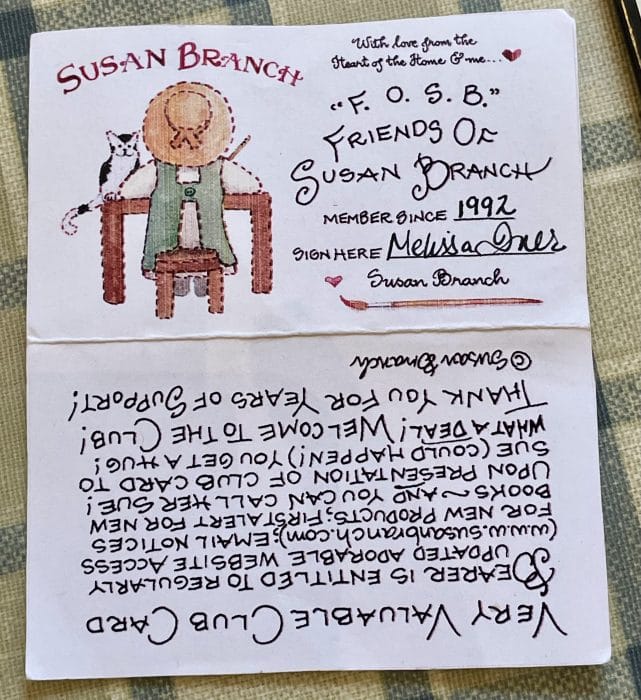 SUSAN BRANCH
With love from the
Heart of the Home & me...
"F. O. S. B."
FRIENDS OF
SUSAN BRANCH
MEMBER SINCE 1992
SIGN HERE Melissa Ines
Susan Branch
VERY VALUABLE CLUB CARD
BEARER IS ENTITLED TO REGULARLY
UPDATED ADORABLE WEBSITE ACCESS
(w.w.w.susanbranch.com); EMAIL NOTICES
FOR NEW PRODUCTS; FIRST ALERT FOR NEW
BOOKS ~ AND YOU CAN CALL HER SUE!
UPON PRESENTATION OF CLUB CARD TO
SUE (COULD HAPPEN!) YOU GET A HUG!
WHAT A DEAL! WELCOME TO THE CLUB!
THANK YOU FOR YEARS OF SUPPORT!
©Susan Branch